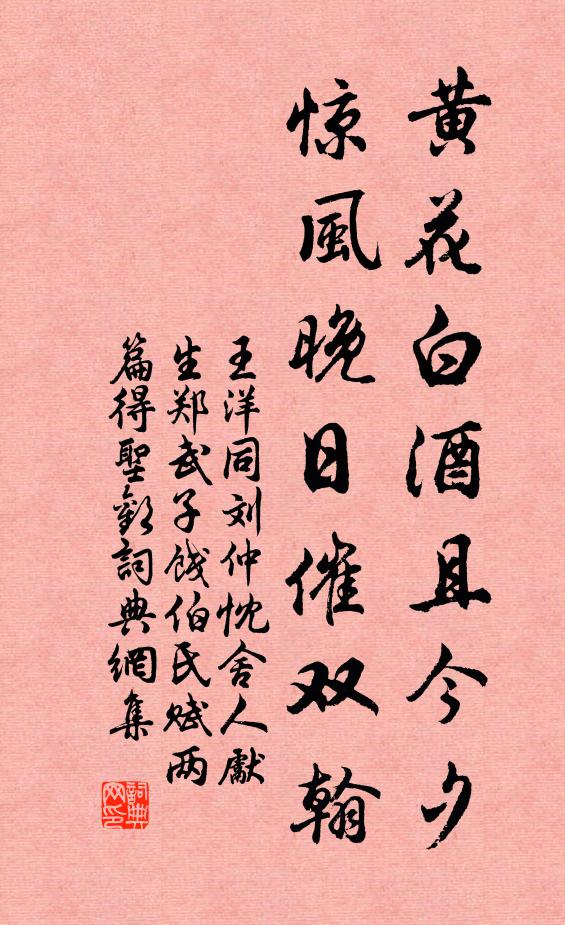 黄花白酒且今夕
惊風晚日催双翰
王洋同刘仲忱舍人獻
生郑武子饯伯氏赋两
篇得聖歡詞典網集
詞典网印